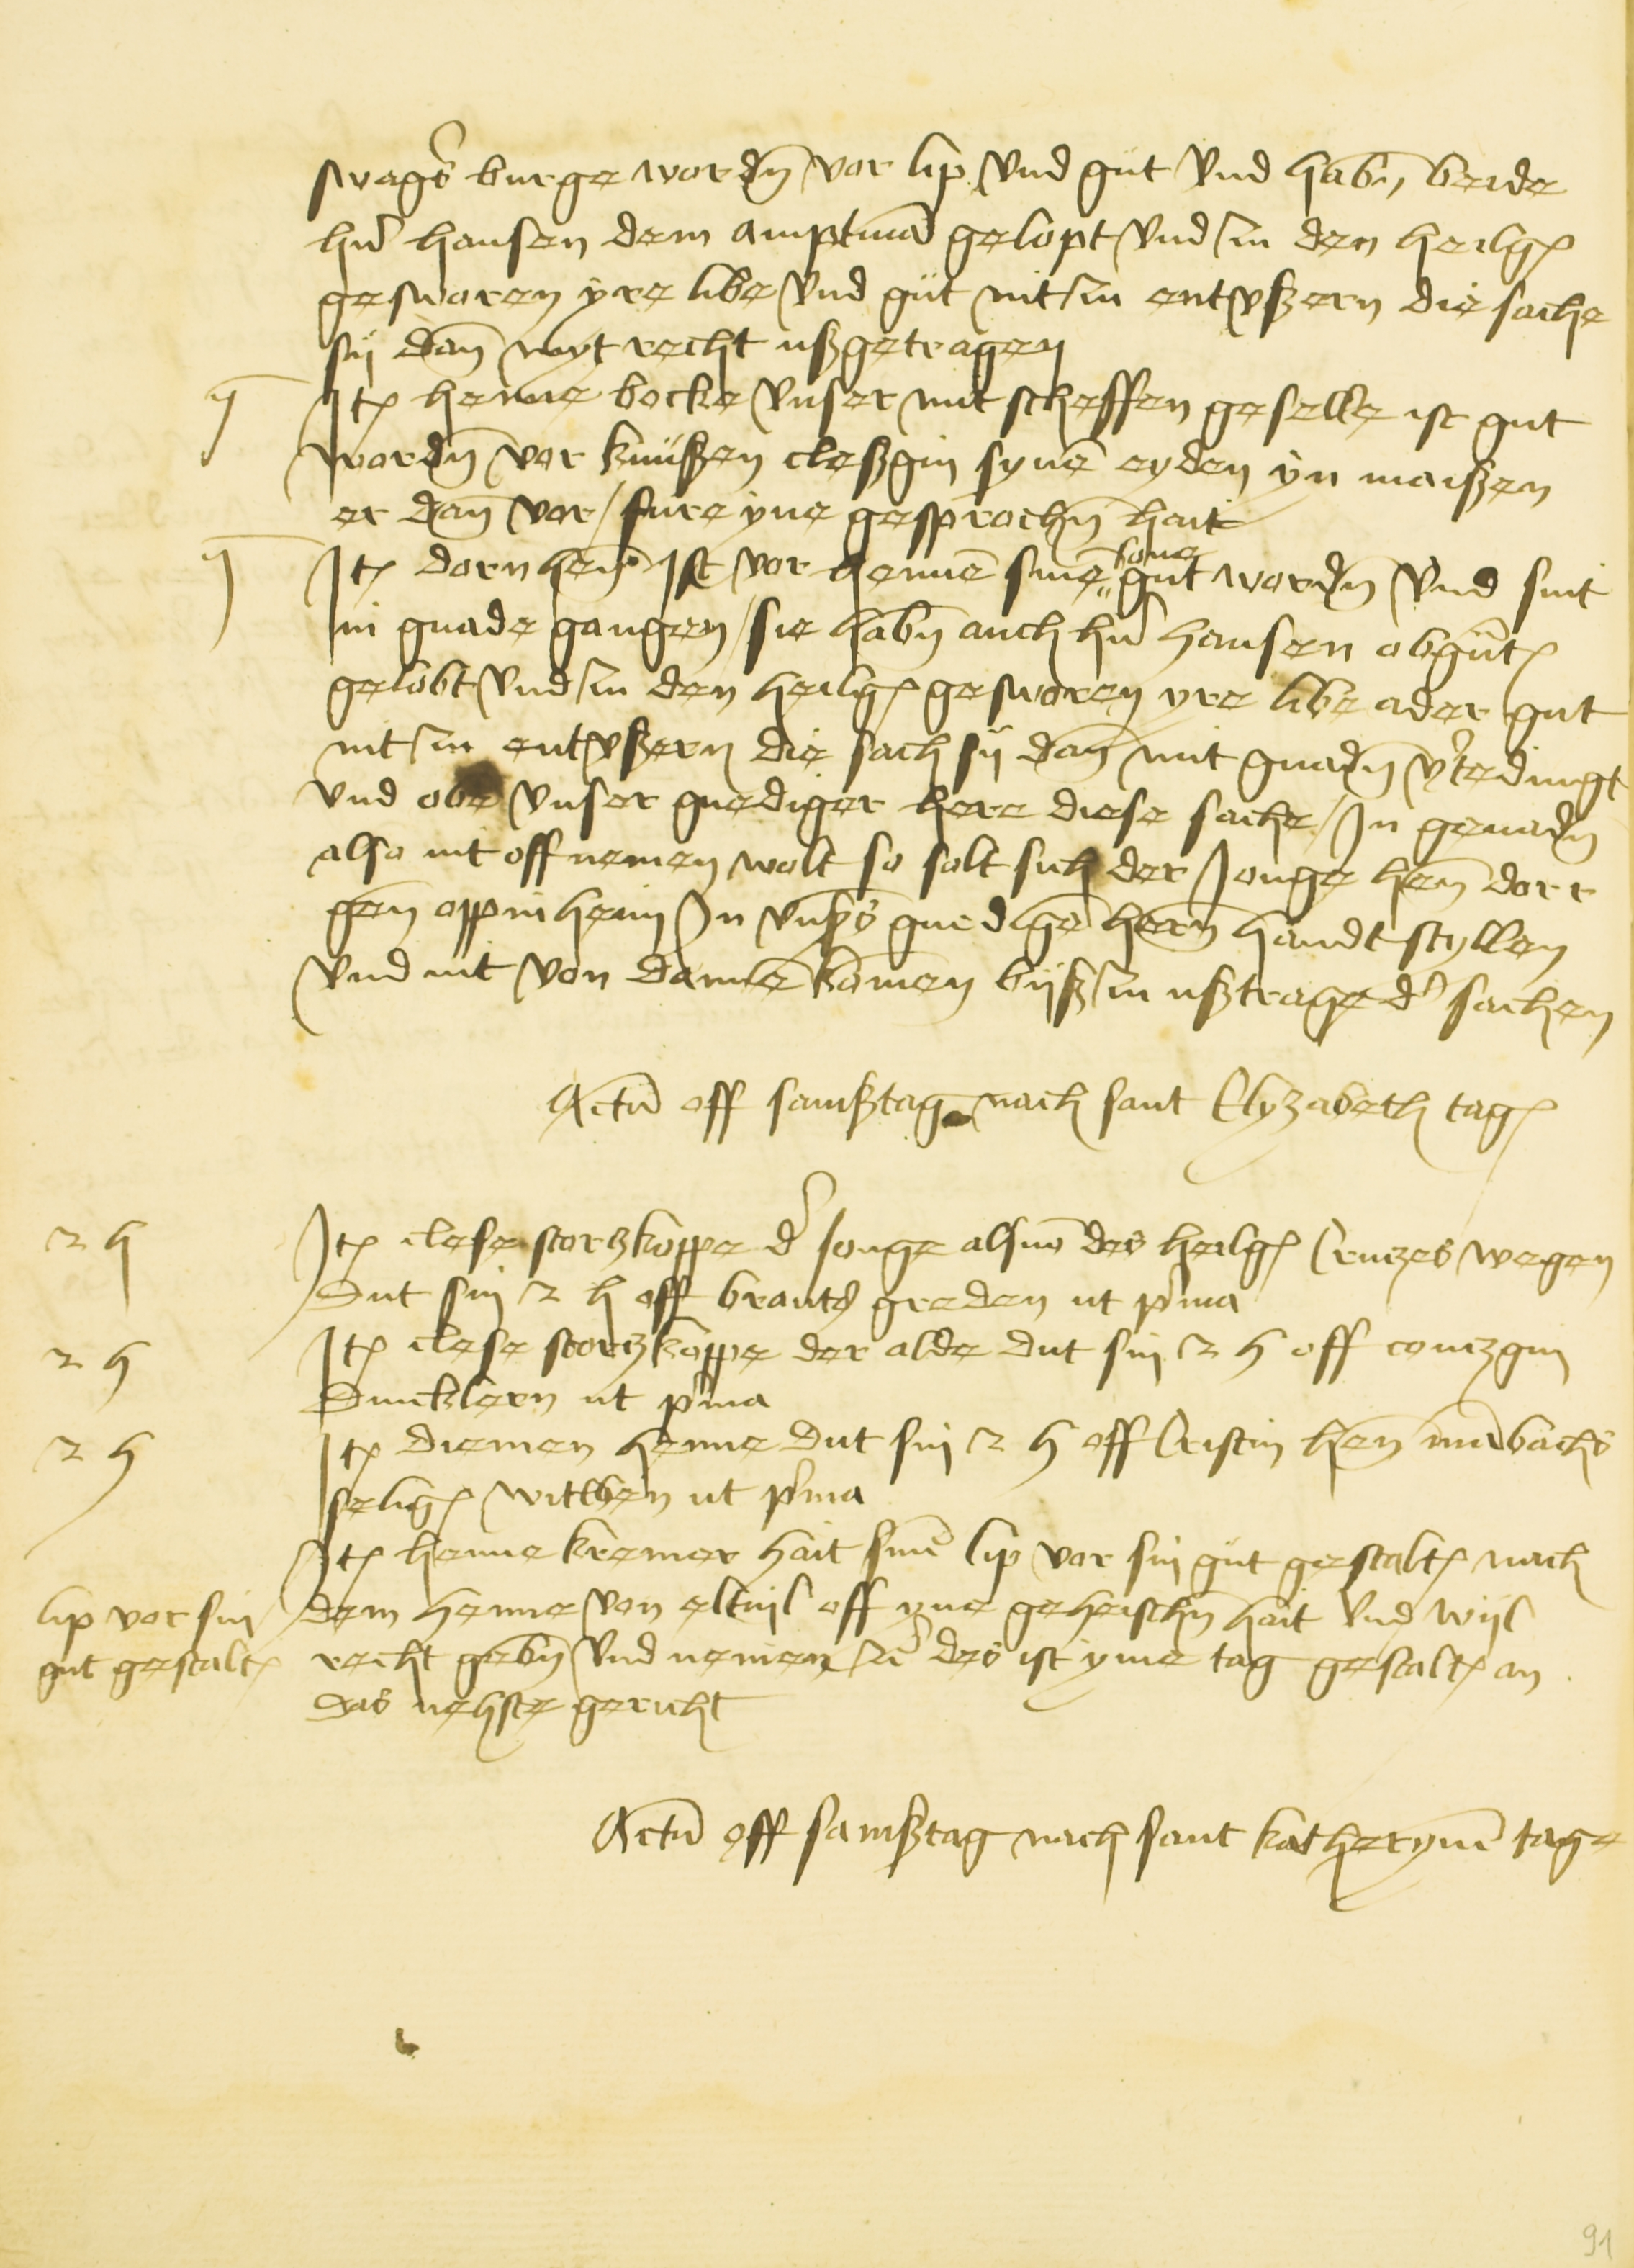 swag's burge wordn̄ vor lip vnd gut vnd habn̄ beide
hn̄ hansen dem amptmā gelopt vnd zu den heilgē
gesworen yre libe vnd gut nit zu entußern die sache
sij dan̄ myt recht ußgetragen
Itē henne bocke vnser mit scheffen geselle ist gut
wordn̄ vor knußen cleßgin synē eyden yn maißen
er dan̄ vor fure yne gesprochn̄ hait
Itē dorn hen̄ Ist vor hennē sinē sone gut wordn̄ vnd sint
in gnade gangen sie habn̄ auch hn̄ hansen obgn̄tē
gelobt vnd zu den heilgē gesworen yre libe ader gut
nit zu entußern die sach sij dan̄ mit gnadn̄ v'tedingt
vnd obe vnser gnediger here diese sache In genadn̄
also nit off nemen wolt so solt sich der Jonge hen̄ dorr
gen̄ oppinheim In vnß's gnedigē hern̄ handt styllen
vnd nit von dannē komen bijß zu ußtrage d' sachen
Actū off samßtag nach sant Elyzabeth tagē
2 h
Itē clese stortzkoppe d' Jonge als vō des heilgē Crutzes wegen
dut sin 2 h off brants greden ut p'ma
2 h
Itē clese stortzkoppe der alde dut sin 2 h off contzgin
Duncklern ut p'ma
2 h
Itē diemen henne dut sin 2 h off Cristin hen̄ mūbachs
seligē witwen ut p'ma
Itē henne kremer hait sinē lip vor sin gut gestaltē nach
lip vor sin
gut gestaltē
dem henne von eltuil off yne geheischn̄ hait vnd wijl
recht gebn̄ vnd nemen des ist yme tag gestaltē an
das nehste gericht
Actū off samßtag nach sant katherynē tage
91